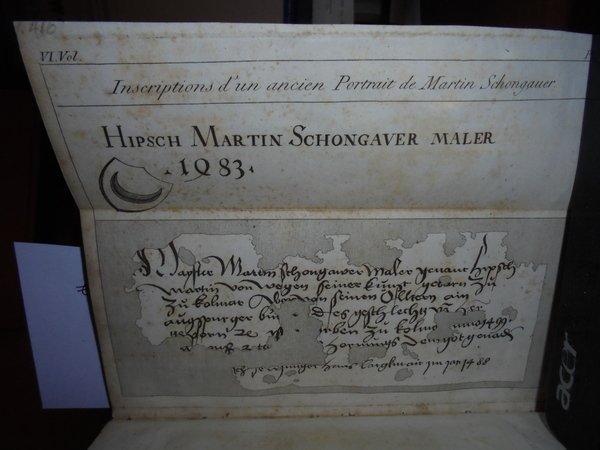 VI. Vol.
Inscriptions d'un ancien Portrait de Martin Schongauer
HIPSCH MARTIN SCHONGAVER MALER
.1Ø83.
Mayster Martin schongawer Maler genent Hipsch
Martin von wegen seiner kunst geborn zu
zu kolmar Aber von seinenÖlltern ain
augspurger bu. des geschlechtz vo. her
geporn ze ist .rben zu kolmar anno 1499
a. uff 2 te hornungs dem got genad
Ich sein junger hans largkmair jm jar 1488
acer